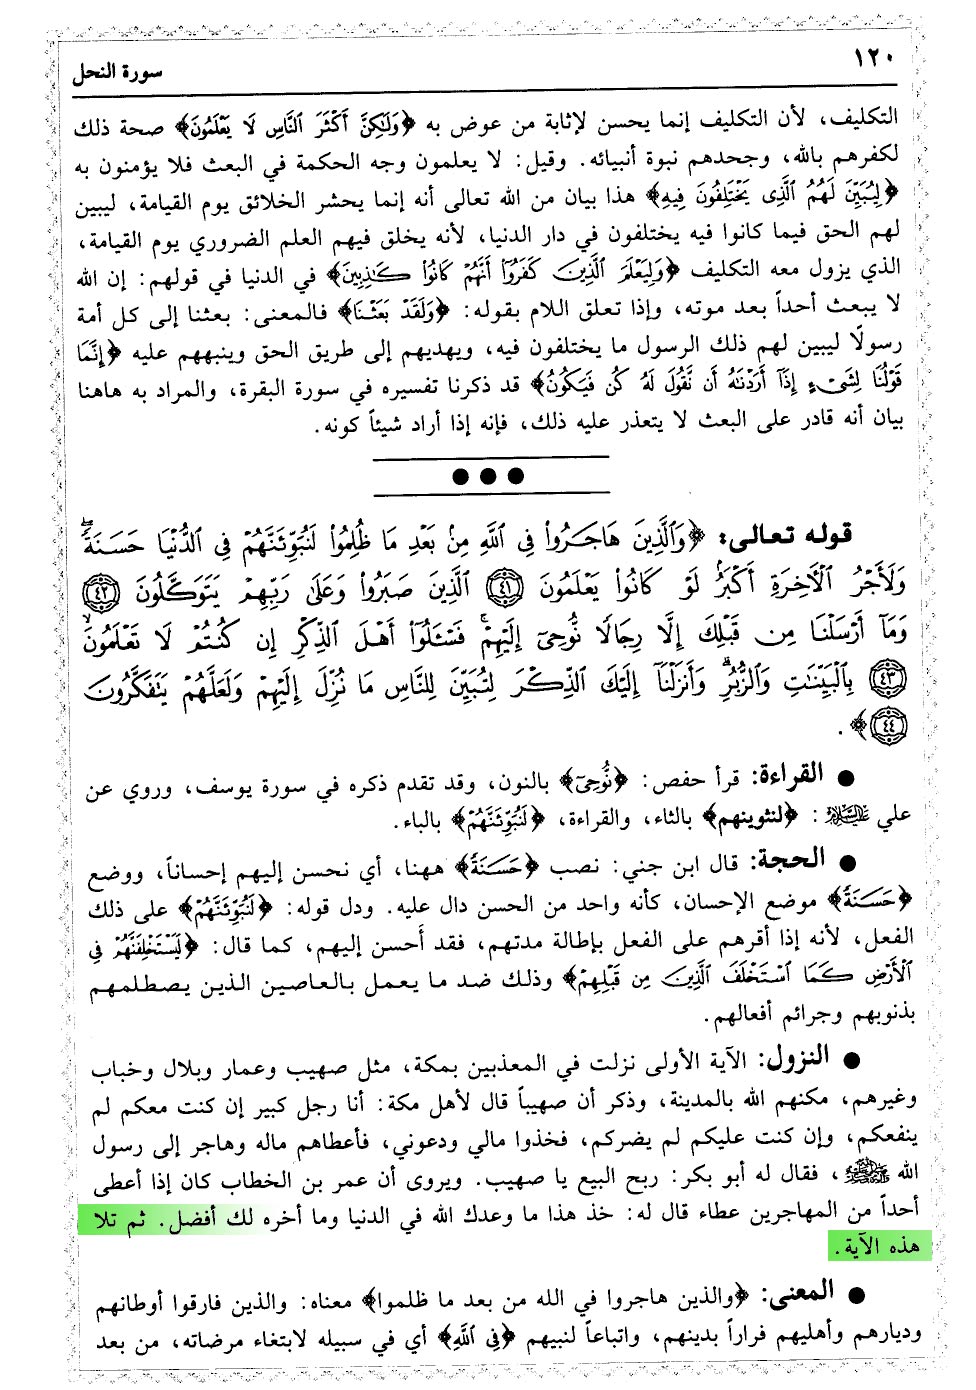 ١٢٠
سورة النحل
التكليف، لأن التكليف إنما يحسن لإثابة من عوض به ﴿وَلَٰكِنَّ أَكْثَرَ ٱلنَّاسِ لَا يَعْلَمُونَ﴾ صحة ذلك
لكفرهم بالله، وجحدهم نبوة أنبيائه. وقيل: لا يعلمون وجه الحكمة في البعث فلا يؤمنون به
﴿لِيُبَيِّنَ لَهُمُ ٱلَّذِى يَخْتَلِفُونَ فِيهِ﴾ هذا بيان من الله تعالى أنه إنما يحشر الخلائق يوم القيامة، ليبين
لهم الحق فيما كانوا فيه يختلفون في دار الدنيا، لأنه يخلق فيهم العلم الضروري يوم القيامة،
الذي يزول معه التكليف ﴿وَلِيَعْلَمَ ٱلَّذِينَ كَفَرُوٓا۟ أَنَّهُمْ كَانُوا۟ كَٰذِبِينَ﴾ في الدنيا في قولهم: إن الله
لا يبعث أحداً بعد موته، وإذا تعلق اللام بقوله: ﴿وَلَقَدْ بَعَثْنَا﴾ فالمعنى: بعثنا إلى كل أمة
رسولًا ليبين لهم ذلك الرسول ما يختلفون فيه، ويهديهم إلى طريق الحق وينبههم عليه ﴿إِنَّمَا
قَوْلُنَا لِشَىْءٍ إِذَآ أَرَدْنَٰهُ أَن نَّقُولَ لَهُۥ كُن فَيَكُونُ﴾ قد ذكرنا تفسيره في سورة البقرة، والمراد به هاهنا
بيان أنه قادر على البعث لا يتعذر عليه ذلك، فإنه إذا أراد شيئاً كونه.
قوله تعالى: ﴿وَٱلَّذِينَ هَاجَرُوا۟ فِى ٱللَّهِ مِنۢ بَعْدِ مَا ظُلِمُوا۟ لَنُبَوِّئَنَّهُمْ فِى ٱلدُّنْيَا حَسَنَةً ۖ
وَلَأَجْرُ ٱلْـَٔاخِرَةِ أَكْبَرُ ۚ لَوْ كَانُوا۟ يَعْلَمُونَ ٤١ ٱلَّذِينَ صَبَرُوا۟ وَعَلَىٰ رَبِّهِمْ يَتَوَكَّلُونَ ٤٢
وَمَآ أَرْسَلْنَا مِن قَبْلِكَ إِلَّا رِجَالًا نُّوحِىٓ إِلَيْهِمْ ۚ فَسْـَٔلُوٓا۟ أَهْلَ ٱلذِّكْرِ إِن كُنتُمْ لَا تَعْلَمُونَ
٤٣ بِٱلْبَيِّنَٰتِ وَٱلزُّبُرِ ۗ وَأَنزَلْنَآ إِلَيْكَ ٱلذِّكْرَ لِتُبَيِّنَ لِلنَّاسِ مَا نُزِّلَ إِلَيْهِمْ وَلَعَلَّهُمْ يَتَفَكَّرُونَ
٤٤﴾.
● القراءة: قرأ حفص: ﴿نُّوحِىٓ﴾ بالنون، وقد تقدم ذكره في سورة يوسف، وروي عن
علي عليه السلام: ﴿لنثوينهم﴾ بالثاء، والقراءة، ﴿لَنُبَوِّئَنَّهُمْ﴾ بالباء.
● الحجة: قال ابن جني: نصب ﴿حَسَنَةً﴾ ههنا، أي نحسن إليهم إحساناً، ووضع
﴿حَسَنَةً﴾ موضع الإحسان، كأنه واحد من الحسن دال عليه. ودل قوله: ﴿لَنُبَوِّئَنَّهُمْ﴾ على ذلك
الفعل، لأنه إذا أقرهم على الفعل بإطالة مدتهم، فقد أَحسن إليهم، كما قال: ﴿لَيَسْتَخْلِفَنَّهُمْ فِى
ٱلْأَرْضِ كَمَا ٱسْتَخْلَفَ ٱلَّذِينَ مِن قَبْلِهِمْ﴾ وذلك ضد ما يعمل بالعاصين الذين يصطلمهم
بذنوبهم وجرائم أفعالهم.
● النزول: الآية الأولى نزلت في المعذبين بمكة، مثل صهيب وعمار وبلال وخباب
وغيرهم، مكنهم الله بالمدينة، وذكر أن صهيباً قال لأهل مكة: أنا رجل كبير إن كنت معكم لم
ينفعكم، وإن كنت عليكم لم يضركم، فخذوا مالي ودعوني، فأعطاهم ماله وهاجر إلى رسول
الله ﷺ، فقال له أبو بكر: ربح البيع يا صهيب. ويروى أن عمر بن الخطاب كان إذا أعطى
أحداً من المهاجرين عطاء قال له: خذ هذا ما وعدك الله في الدنيا وما أخره لك أفضل. ثم تلا
هذه الآية.
● المعنى: ﴿والذين هاجروا في الله من بعد ما ظلموا﴾ معناه: والذين فارقوا أوطانهم
وديارهم وأهليهم فراراً بدينهم، واتباعاً لنبيهم ﴿فِى ٱللَّهِ﴾ أي في سبيله لابتغاء مرضاته، من بعد